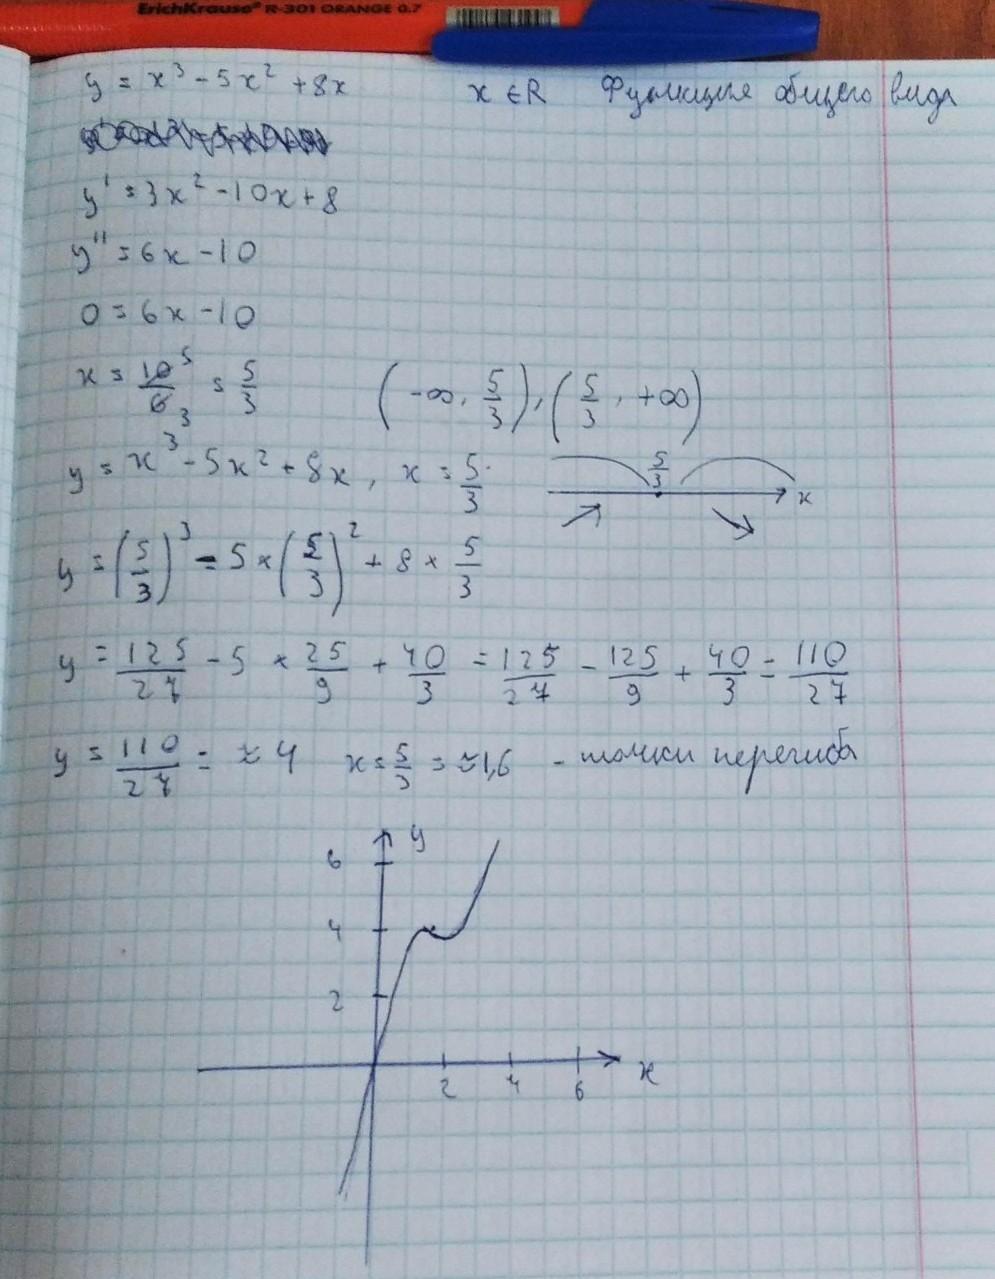 ErichKrause® R-301 ORANGE 0.7
y = x³ - 5x² + 8x x ∈ R Функция общего вида
y' = 3x² - 10x + 8
y'' = 6x - 10
0 = 6x - 10
x = 10/6 5 3 = 5/3 (-∞, 5/3), (5/3, +∞)
y = x³ - 5x² + 8x, x = 5/3 5/3 x
y = (5/3)³ - 5 × (5/3)² + 8 × 5/3
y = 125/27 - 5 × 25/9 + 40/3 = 125/27 - 125/9 + 40/3 = 110/27
y = 110/27 = ≈ 4 x = 5/3 = ≈ 1,6 - точки перегиба
y
6
4
2
2 4 6 x